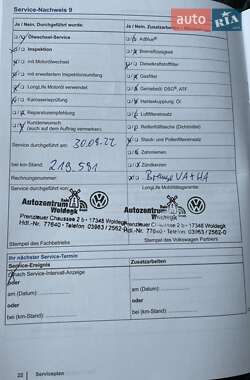 Service-Nachweis 9
Ja / Nein, Durchgeführt wurde:
Ja / Nein, Zusatzarbeiten
Ölwechsel-Service
AdBlue®
Inspektion
Bremsflüssigkeit
mit Motorölwechsel
Dieselkraftstofffilter
mit erweitertem Inspektionsumfang
Gasfilter
LongLife Motoröl verwendet
Getriebeöl DSG®, ATF
Karosserieprüfung
Haldexkupplung, Öl
Reparaturempfehlung
Luftfiltereinsatz
Kundenwunsch
(auch auf dem Auftrag vermerken)
Reifenfüllflasche (Dichtmittel)
Staub- und Pollenfiltereinsatz
Service durchgeführt am: 30.09.22
Zahnriemen
bei km-Stand: 219.591
Zündkerzen
Rechnungsnummer:
Bremse VA+HA
Service durchgeführt von:
LongLife Mobilitätsgarantie:
Autozentrum
Woldegk
Prenzlauer Chaussee 2 b • 17348 Woldegk
Hdl.-Nr. 77640 • Telefon 03963 / 2562-0
Autozentrum
Woldegk
Prenzlauer Chaussee 2 b • 17348 Woldegk
Hdl.-Nr. 77640 • Telefon 03963 / 2562-0
Stempel des Fachbetriebs
Stempel des Volkswagen Partners
Ihr nächster Service-Termin
Service-Ereignis
Zusatzarbeiten
nach Service-Intervall-Anzeige
oder
am (Datum):
am (Datum):
oder
oder
bei (km-Stand):
bei (km-Stand):
22
Serviceplan
RIA.com